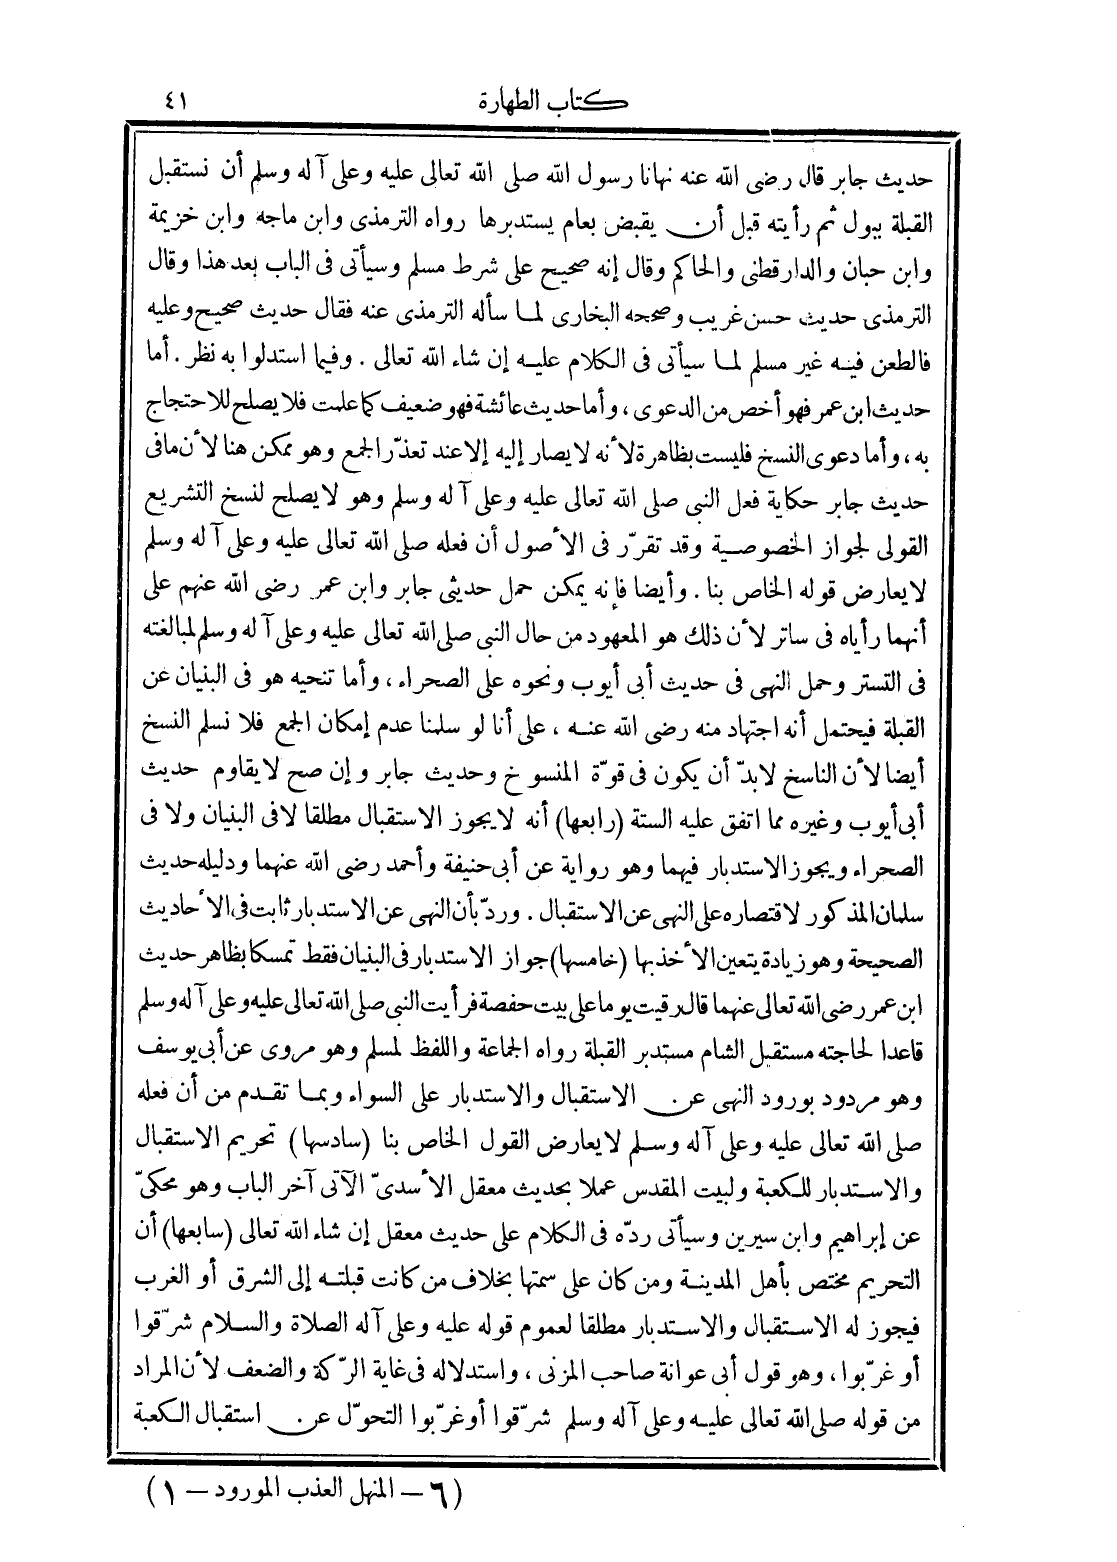 كتاب الطهارة ٤١
حديث جابر قال رضى الله عنه نهانا رسول الله صلى الله تعالى عليه وعلى آله وسلم أن نستقبل
القبلة ببول ثم رأيته قبل أن يقبض بعام يستدبرها رواه الترمذى وابن ماجه وابن خزيمة
وابن حبان والدارقطنى والحاكم وقال إنه صحيح على شرط مسلم وسيأتى فى الباب بعد هذا وقال
الترمذى حديث حسن غريب وصححه البخارى لما سأله الترمذى عنه فقال حديث صحيح وعليه
فالطعن فيه غير مسلم لما سيأتى فى الكلام عليه إن شاء الله تعالى . وفيما استدلوا به نظر . أما
حديث ابن عمر فهو أخص من الدعوى ، وأما حديث عائشة فهو ضعيف كما علمت فلا يصلح للاحتجاج
به ، وأما دعوى النسخ فليست بظاهرة لأنه لا يصار إليه إلا عند تعذّر الجمع وهو ممكن هنا لأن ما فى
حديث جابر حكاية فعل النبى صلى الله تعالى عليه وعلى آله وسلم وهو لا يصلح لنسخ التشريع
القولى لجواز الخصوصية وقد تقرّر فى الأصول أن فعله صلى الله تعالى عليه وعلى آله وسلم
لا يعارض قوله الخاص بنا . وأيضا فإنه يمكن حمل حديثى جابر وابن عمر رضى الله عنهم على
أنهما رأياه فى ساتر لأن ذلك هو المعهود من حال النبى صلى الله تعالى عليه وعلى آله وسلم لمبالغته
فى التستر وحمل النهى فى حديث أبى أيوب ونحوه على الصحراء ، وأما تنحيه هو فى البنيان عن
القبلة فيحتمل أنه اجتهاد منه رضى الله عنه ، على أنا لو سلمنا عدم إمكان الجمع فلا نسلم النسخ
أيضا لأن الناسخ لابدّ أن يكون فى قوّة المنسوخ وحديث جابر وإن صح لا يقاوم حديث
أبى أيوب وغيره مما اتفق عليه الستة (رابعها) أنه لا يجوز الاستقبال مطلقا لا فى البنيان ولا فى
الصحراء ويجوز الاستدبار فيهما وهو رواية عن أبى حنيفة وأحمد رضى الله عنهما ودليله حديث
سلمان المذكور لاقتصاره على النهى عن الاستقبال . وردّ بأن النهى عن الاستدبار ثابت فى الأحاديث
الصحيحة وهو زيادة يتعين الأخذ بها (خامسها) جواز الاستدبار فى البنيان فقط تمسكا بظاهر حديث
ابن عمر رضى الله تعالى عنهما قال رقيت يوما على بيت حفصة فرأيت النبى صلى الله تعالى عليه وعلى آله وسلم
قاعدا لحاجته مستقبل الشام مستدبر القبلة رواه الجماعة واللفظ لمسلم وهو مروى عن أبى يوسف
وهو مردود بورود النهى عن الاستقبال والاستدبار على السواء وبما تقدم من أن فعله
صلى الله تعالى عليه وعلى آله وسلم لا يعارض القول الخاص بنا (سادسها) تحريم الاستقبال
والاستدبار للكعبة ولبيت المقدس عملا بحديث معقل الأسدىّ الآتى آخر الباب وهو محكىّ
عن إبراهيم وابن سيرين وسيأتى ردّه فى الكلام على حديث معقل إن شاء الله تعالى (سابعها) أن
التحريم مختص بأهل المدينة ومن كان على سمتها بخلاف من كانت قبلته إلى الشرق أو الغرب
فيجوز له الاستقبال والاستدبار مطلقا لعموم قوله عليه وعلى آله الصلاة والسلام شرّقوا
أو غرّبوا ، وهو قول أبى عوانة صاحب المزنى ، واستدلاله فى غاية الرّكة والضعف لأن المراد
من قوله صلى الله تعالى عليه وعلى آله وسلم شرّقوا أو غرّبوا التحوّل عن استقبال الكعبة
(٦ – المنهل العذب المورود – ١)